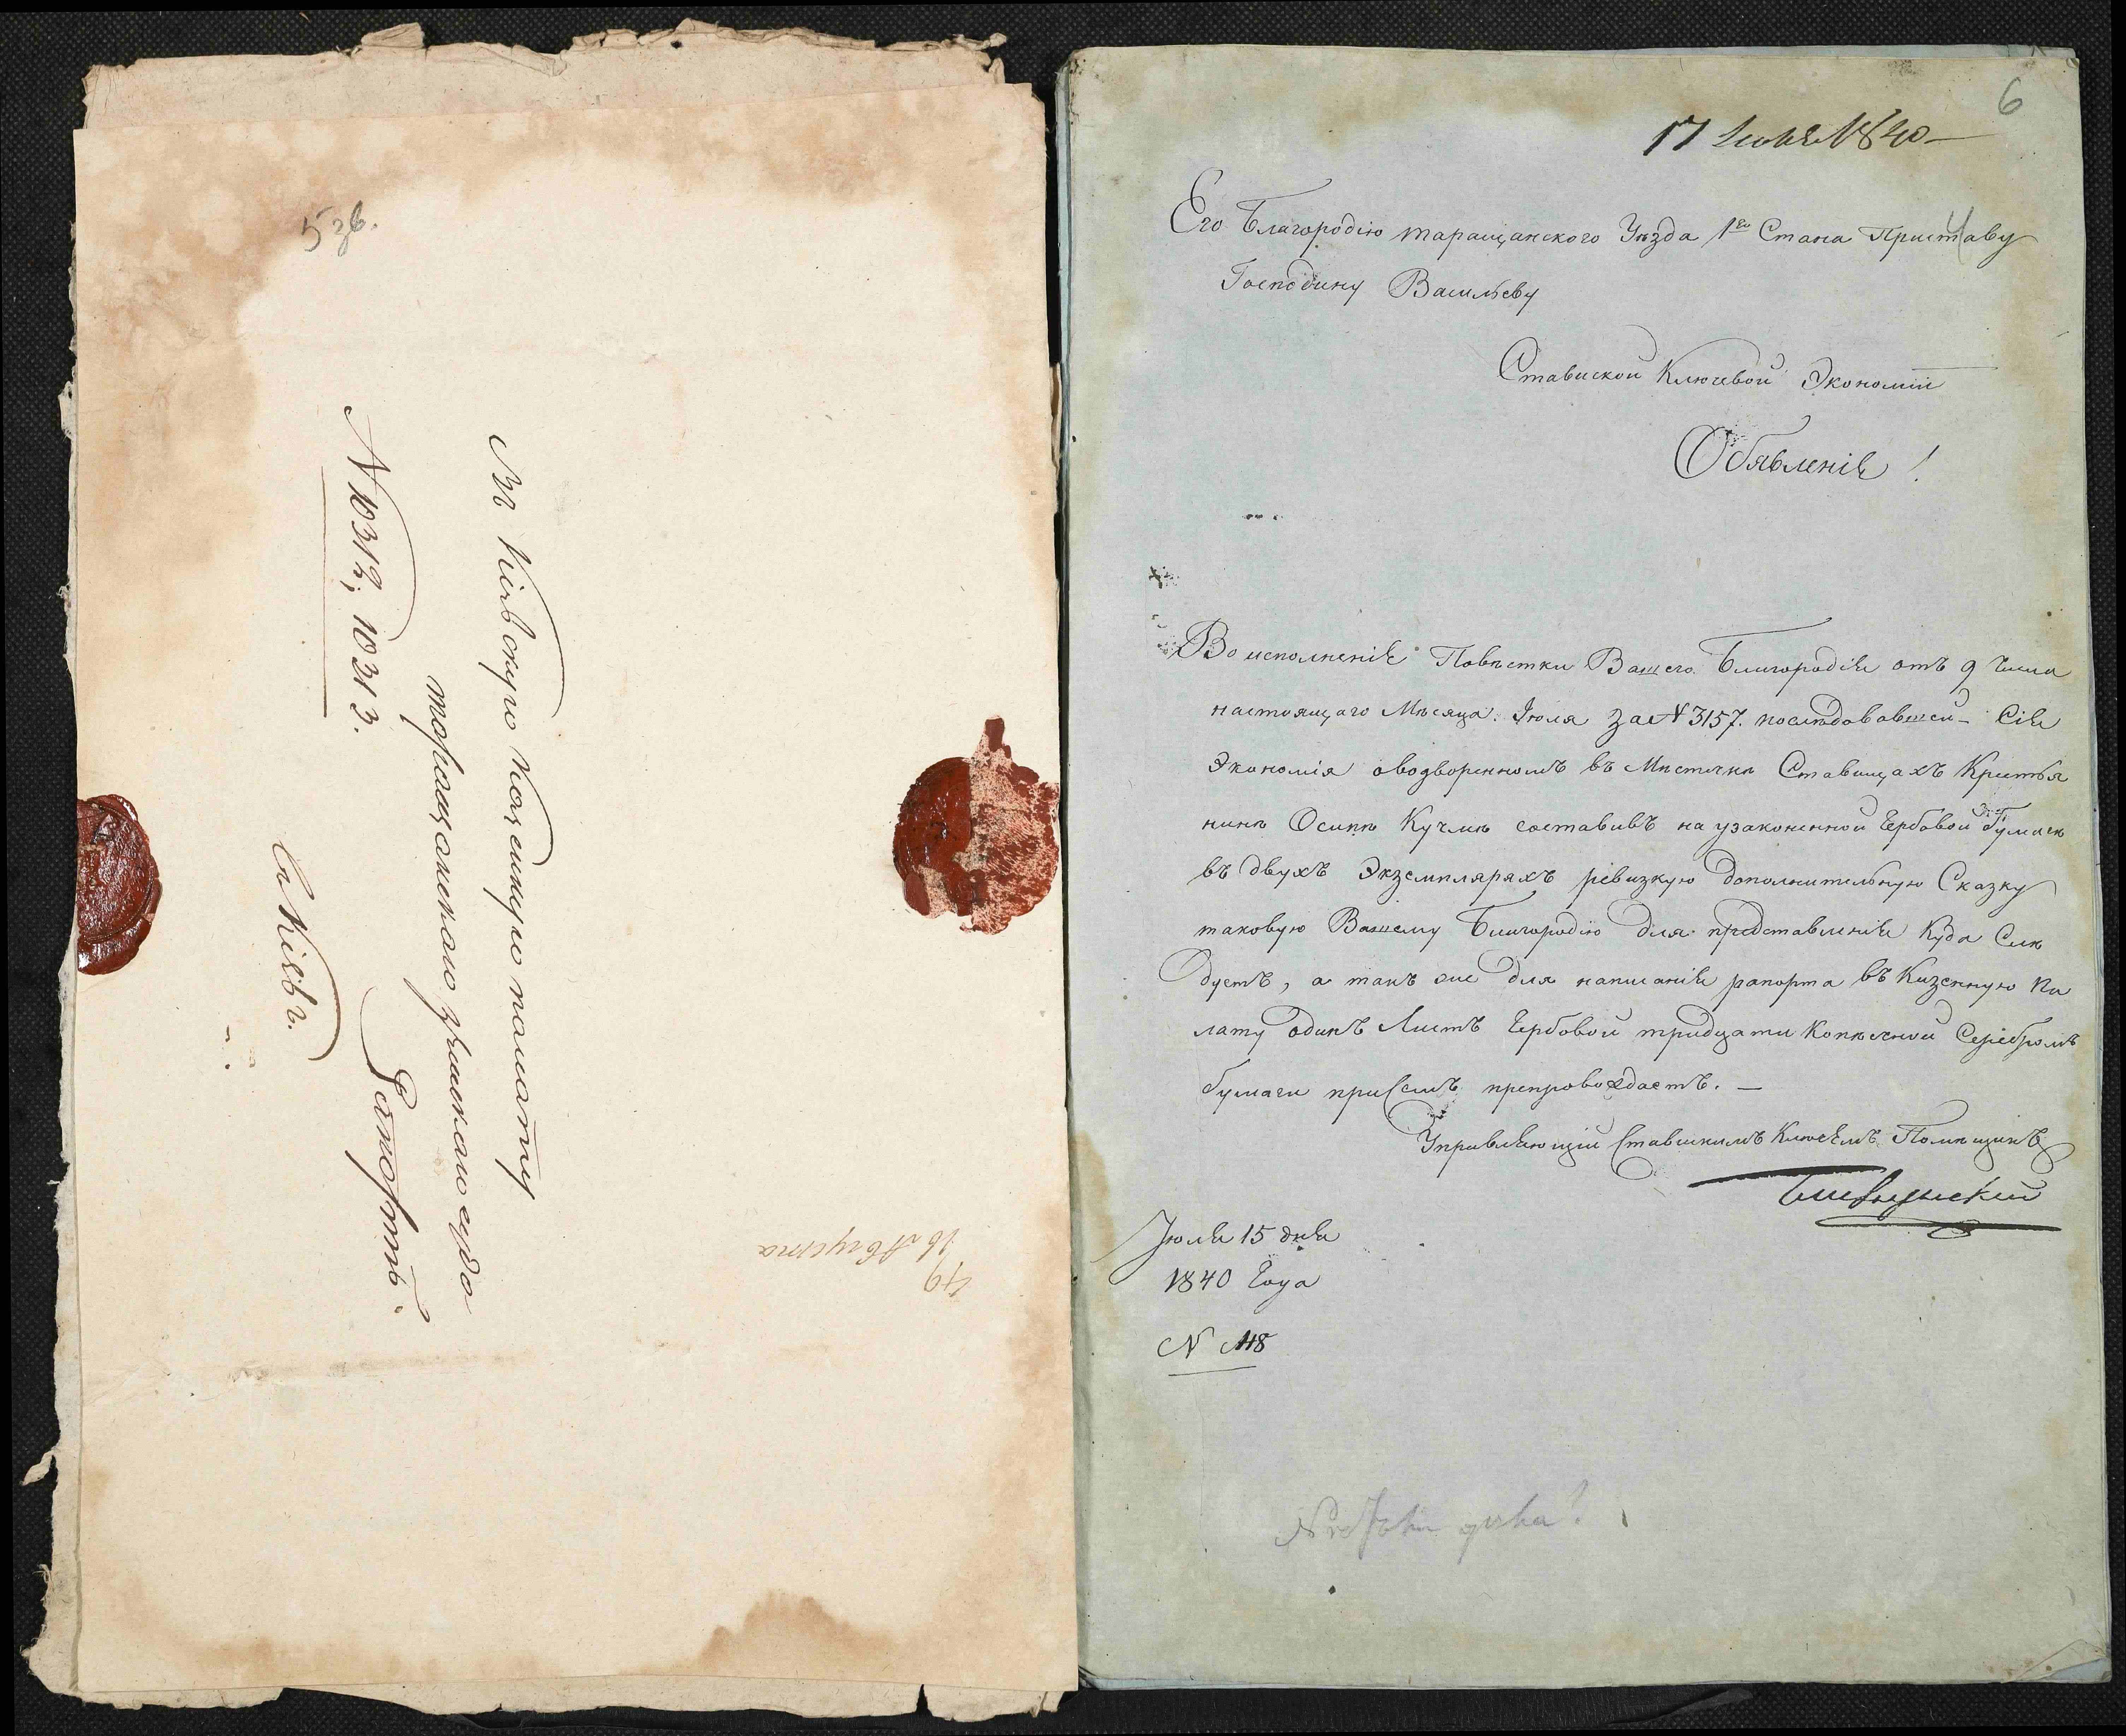 5 зв.
Въ Кіевскую Казенную палату
таращанскаго земскаго суда
Рапортъ.
N 10312, 10313.
въ Кіевъ.
49
16 Августа
6
17 Июля 1840
Его Благородію таращанского Уѣзда 1го Стана Приставу
Господину Васильеву
Ставиской Ключевой Экономіи
Обявленіе!
Во исполненіе Повѣстки Вашего Благородія отъ 9 числа
настоящаго Мѣсяца Іюля за N 3157. послѣдовавшей - Сія
Экономія оводворенномъ въ Мѣстечкѣ Ставищахъ Крестья
нинѣ Осипѣ Кучмѣ составивъ на узаконенной Гербовой бумагѣ
въ двухъ Экземплярахъ ревизкую дополнительную Сказку
таковую Вашему Благородію для представленія Куда Слѣ
дуетъ, а такъ же для написанія рапорта въ Казенную Па
лату одинъ Листъ Гербовой тридцати Копѣечной Серебромъ
бумаги при Семъ препровождаетъ. —
Управляющій Ставискимъ Ключемъ Помѣщикъ
Іюля 15 дня
1840 Года
N 118